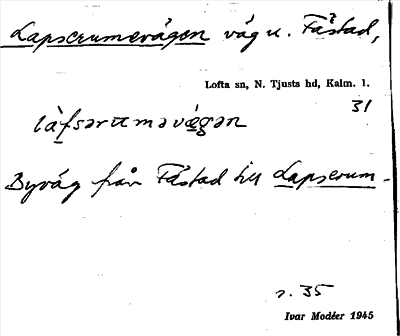 Lapserumevägen väg u. Fåstad,
Lofta sn, N. Tjusts hd, Kalm. l.
31
làfsəruməvǽgən
Byväg från Fåstad till Lapserum.
s. 35
Ivar Modéer 1945